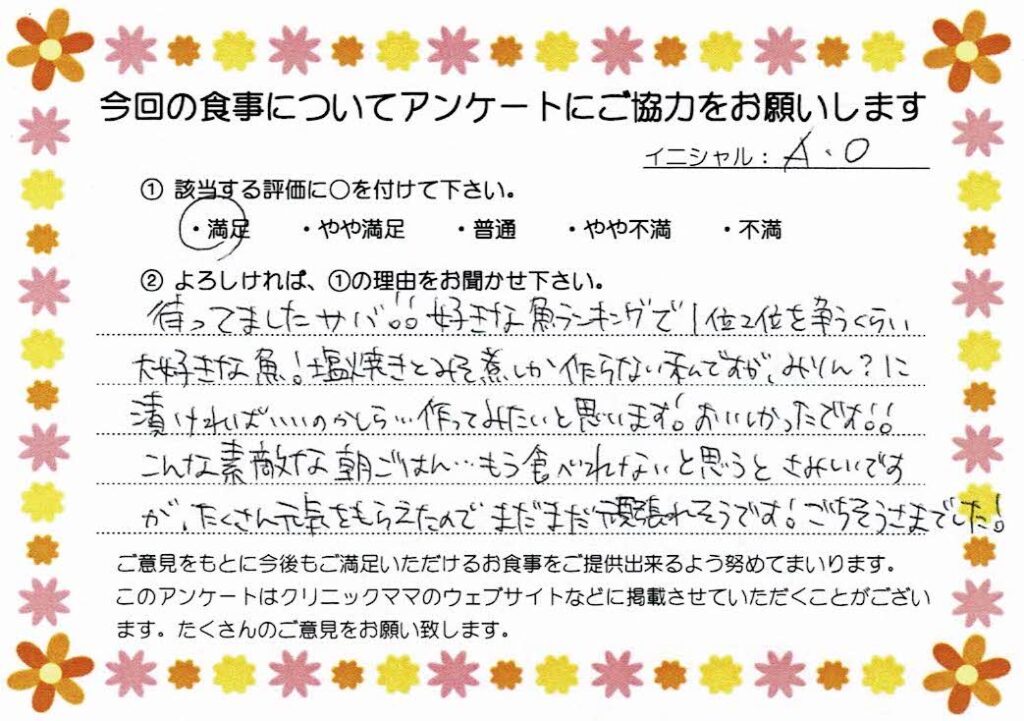 今回の食事についてアンケートにご協力をお願いします
イニシャル：A.O
① 該当する評価に○を付けて下さい。
・満足 ・やや満足 ・普通 ・やや不満 ・不満
② よろしければ、①の理由をお聞かせ下さい。
待ってましたサバ!! 好きな魚ランキングで1位2位を争うくらい
大好きな魚！塩焼きとみそ煮しか作らない私ですが、みりん？に
漬ければいいのかしら…作ってみたいと思います！おいしかったです!!
こんな素敵な朝ごはん…もう食べれないと思うとさみしいです
が、たくさん元気をもらえたのでまだまだ頑張れそうです！ごちそうさまでした！
ご意見をもとに今後もご満足いただけるお食事をご提供出来るよう努めてまいります。
このアンケートはクリニックママのウェブサイトなどに掲載させていただくことがござい
ます。たくさんのご意見をお願い致します。